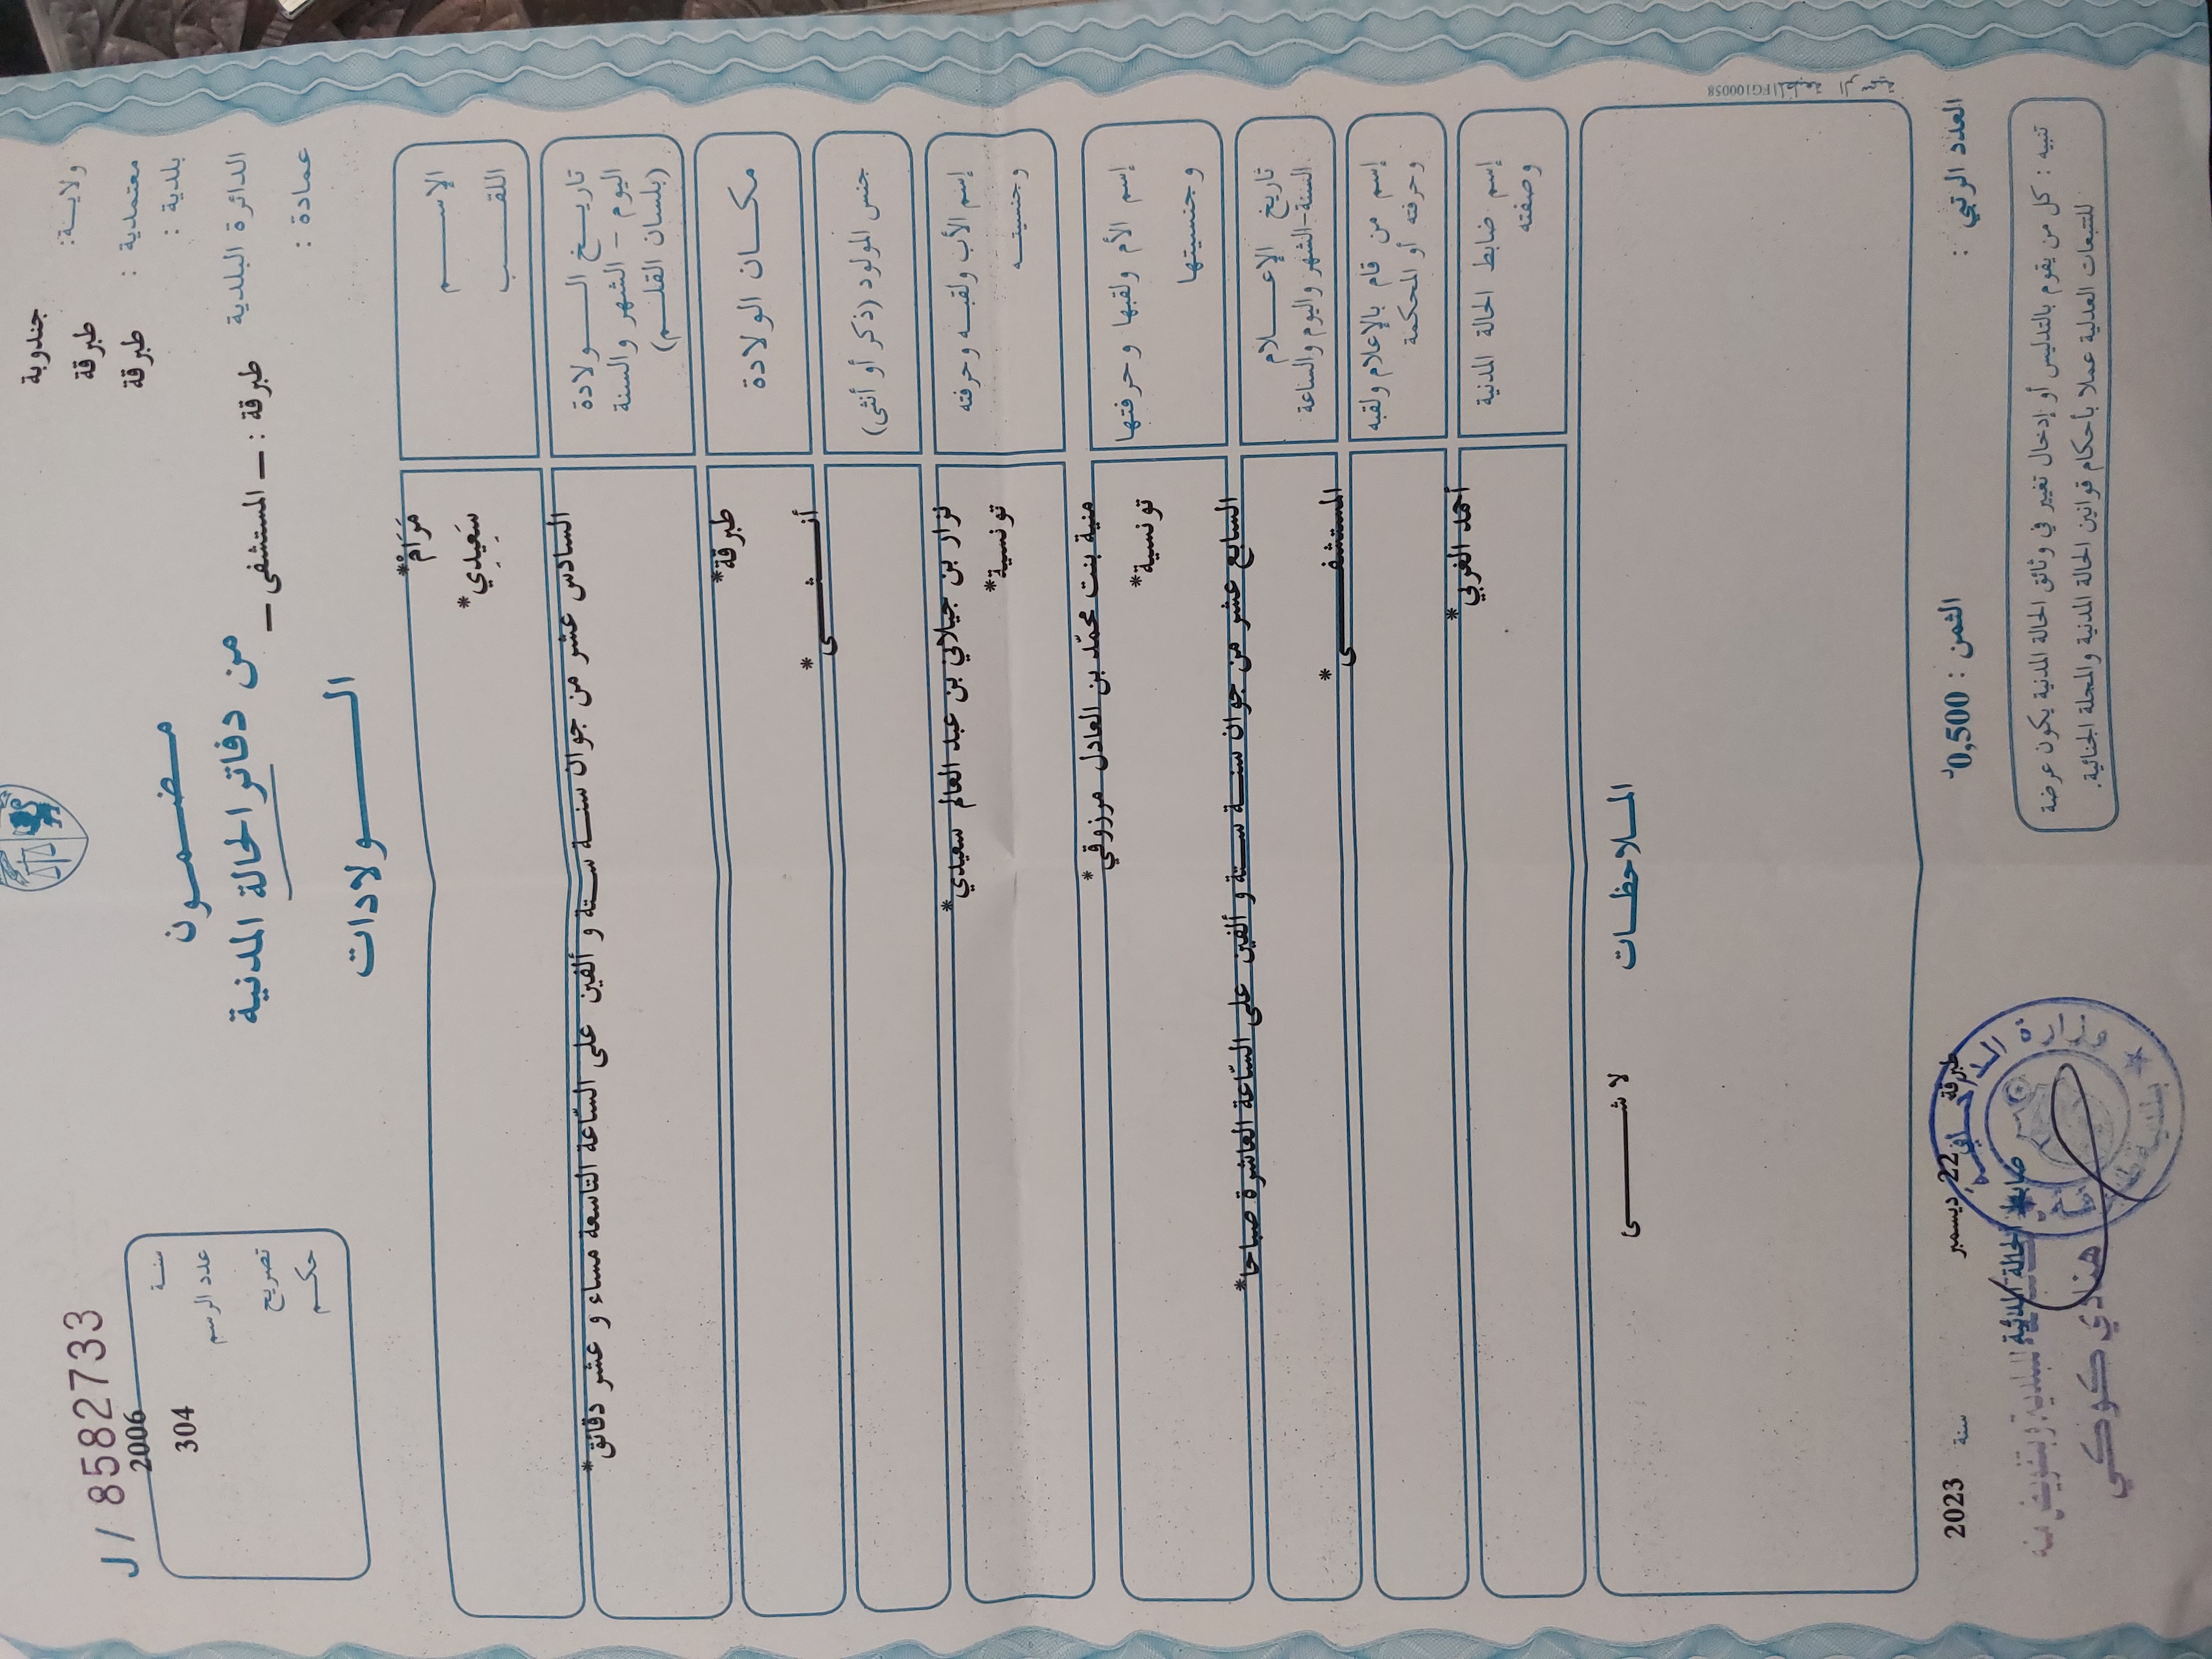 ولاية: جندوبة
معتمدية : طبرقة
بلدية : طبرقة
الدائرة البلدية طبرقة : - المستشفى -
عمادة :
J / 8582733
سنة 2006
عدد الرسم 304
تصريح
حكم
مضمون
من دفاتر الحالة المدنية
الولادات
الإسم مَرَامْ*
اللقب سَعِيدِي*
تاريخ الولادة السادس عشر من جوان سنة ستة و ألفين على السّاعة التاسعة مساء و عشر دقائق*
اليوم - الشهر والسنة
(بلسان القلم)
مكان الولادة طبرقة*
جنس المولود (ذكر أو أنثى) أنثى*
إسم الأب ولقبه وحرفته نزار بن جيلاني بن عبد العالم سعيدي*
وجنسيته تونسية*
إسم الأم ولقبها وحرفتها منية بنت محمّد بن العادل مرزوقي*
وجنسيتها تونسية*
تاريخ الإعلام السابع عشر من جوان سنة ستة و ألفين على السّاعة العاشرة صباحا*
السنة-الشهر واليوم والساعة
إسم من قام بالإعلام ولقبه المستشفى*
وحرفته أو المحكمة
إسم ضابط الحالة المدنية أحمد الغربي*
وصفته
الملاحظات
لا شى
FG100058
العدد الرتبي :
الثمن : 0,500د
طبرقة في 22 ديسمبر سنة 2023
ضابط الحالة المدنية
هنادي كوكي
تنبيه : كل من يقوم بالتدليس أو إدخال تغيير في وثائق الحالة المدنية يكون عرضة
للتتبعات العدلية عملا بأحكام قوانين الحالة المدنية والمجلة الجنائية.